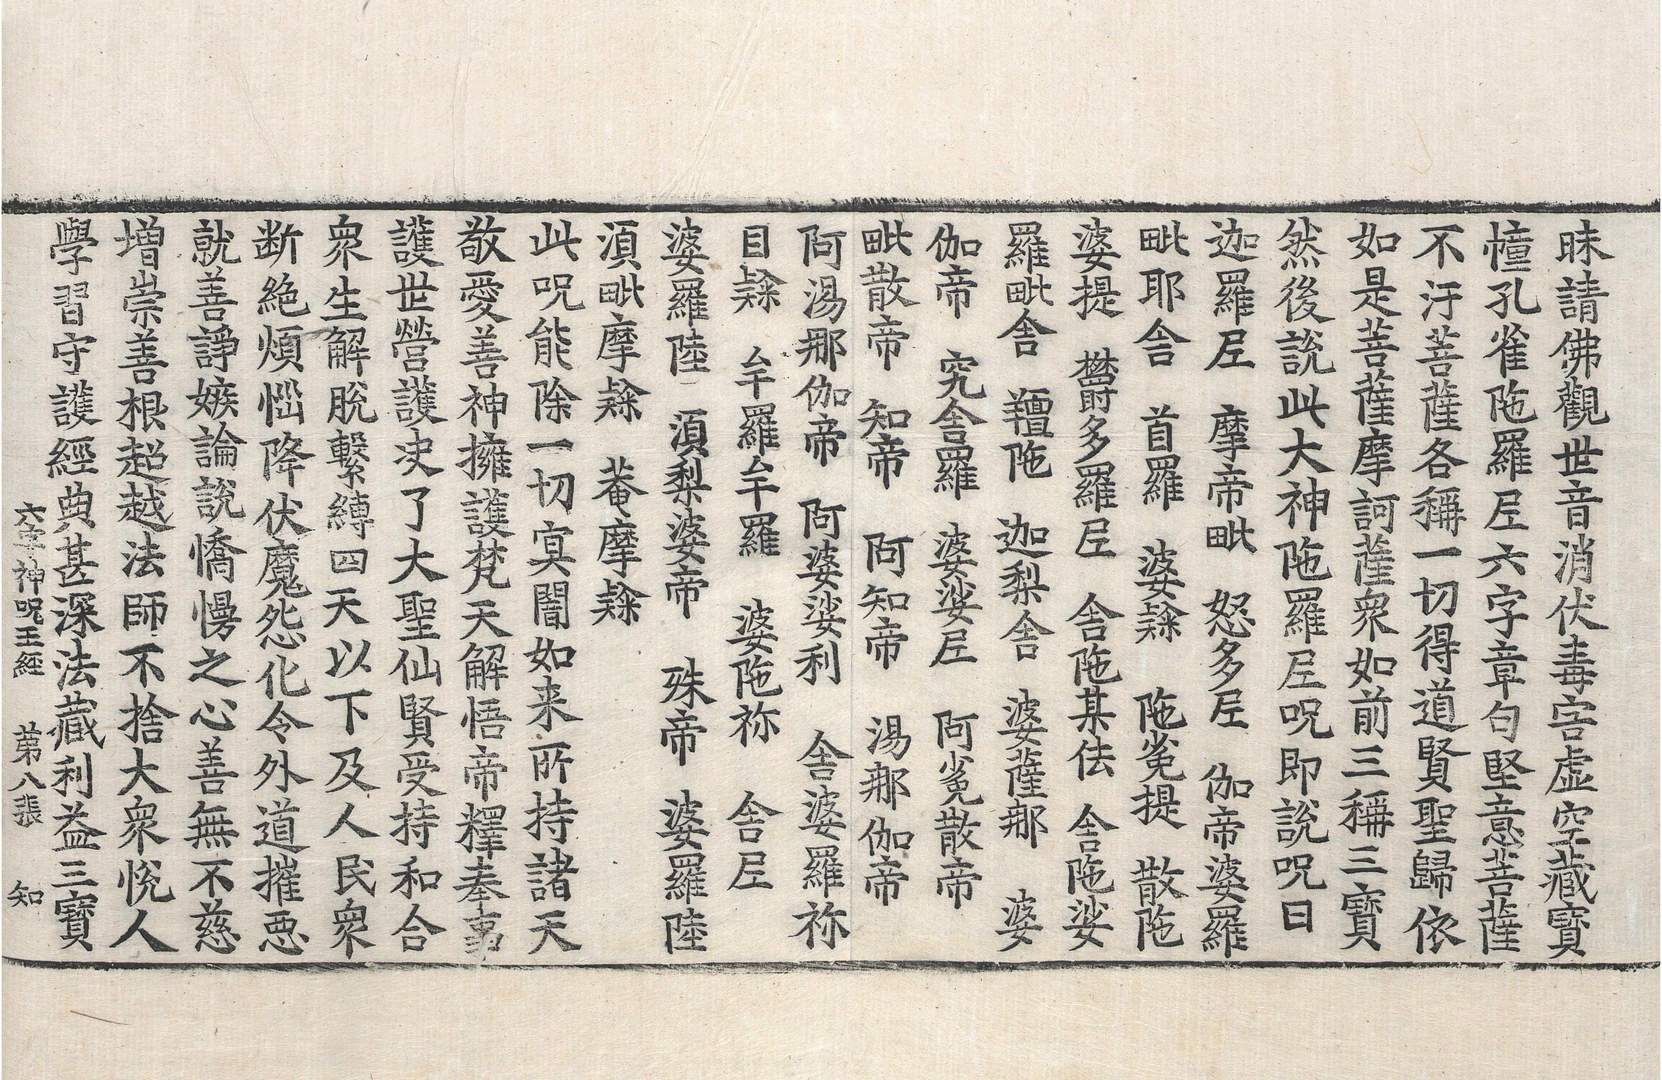 昧請佛觀世音消伏毒害虛空藏寶
幢孔雀陁羅𡰱六字章句堅意菩薩
不汙菩薩各稱一切得道賢聖歸依
如是菩薩摩訶薩衆如前三稱三寶
然後說此大神陁羅𡰱呪即說呪曰
迦羅𡰱　摩帝毗　怒多𡰱　伽帝婆羅
毗耶舍　首羅　婆𨽻　陁㝹提　散陁
婆提　欝多羅𡰱　舍陁某伕　舍陁娑
羅毗舍　䩶陁　迦梨舍　婆薩那　婆
伽帝　究舍羅　婆娑𡰱　阿㝹散帝
毗散帝　知帝　阿知帝　湯那伽帝
阿湯那伽帝　阿婆娑利　舍婆羅祢
目𨽻　牟羅牟羅　婆陁祢　舍𡰱
婆羅陸　湏梨婆帝　殊帝　婆羅陸
湏毗摩𨽻　菴摩𨽻
此呪能除一切㝠闇如来所持諸天
敬愛善神擁護梵天解悟帝釋奉事
護世營護决了大聖仙賢受持和合
衆生解脫繫縛四天以下及人民衆
断絶煩惱降伏魔怨化令外道摧惡
就善諍嫉論說憍慢之心善無不慈
增崇善根超越法師不捨大衆悅人
學習守護經典甚深法藏利益三寶
六字神呪王經　第八張　知